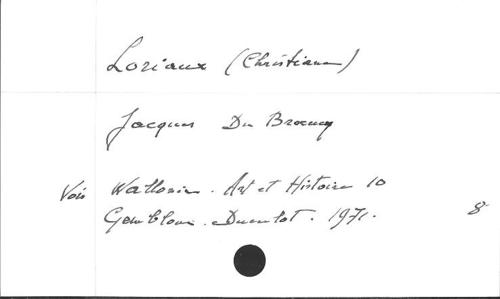 Loriaux (Christiane)
Jacques Du Broeucq
Voir Wallonie. Art et Histoire 10
Gembloux. Duculot. 1971.
8